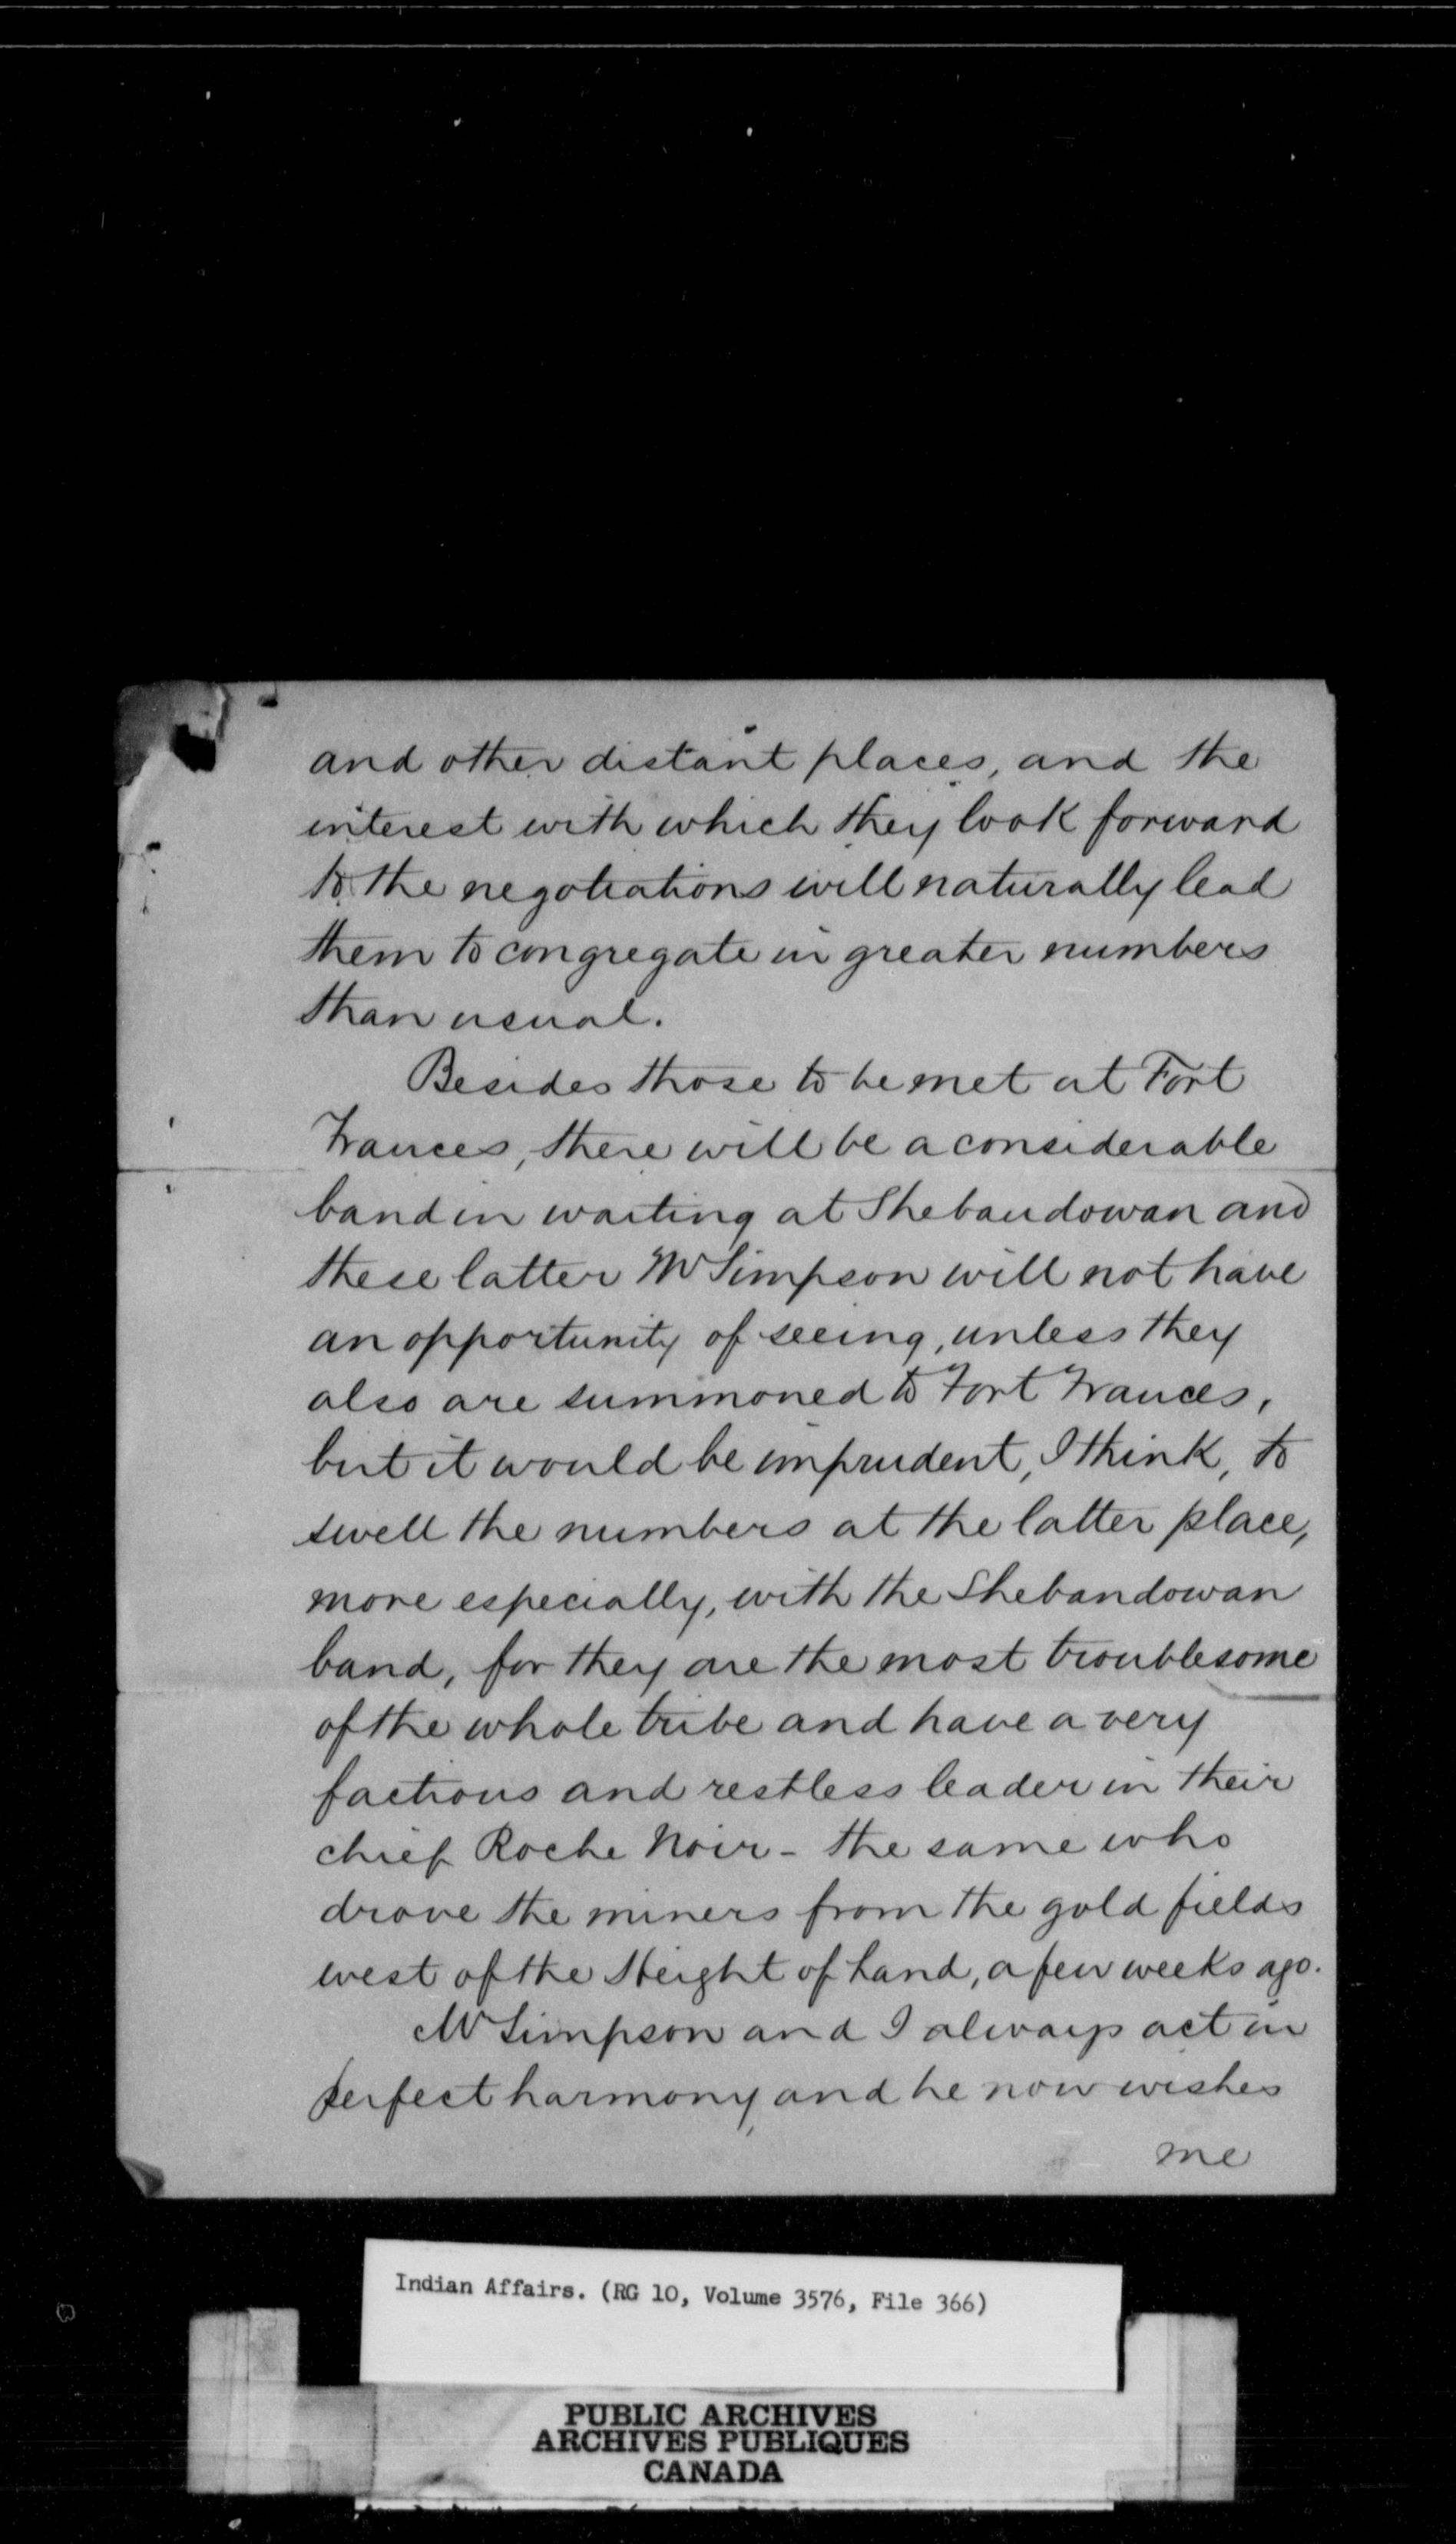 and other distant places, and the
interest with which they look forward
to the negotiations will naturally lead
them to congregate in greater numbers
than usual.
Besides those to be met at Fort
Frances, there will be a considerable
band in waiting at Shebandowan and
these latter Mr Simpson will not have
an opportunity of seeing, unless they
also are summoned to Fort Frances,
but it would be imprudent, I think, to
swell the numbers at the latter place,
more especially, with the Shebandowan
band, for they are the most troublesome
of the whole tribe and have a very
factious and restless leader in their
chief Roche Noir - the same who
drove the miners from the gold fields
west of the Height of Land, a few weeks ago.
Mr Simpson and I always act in
perfect harmony, and he now wishes
me
Indian Affairs. (RG 10, Volume 3576, File 366)
PUBLIC ARCHIVES
ARCHIVES PUBLIQUES
CANADA